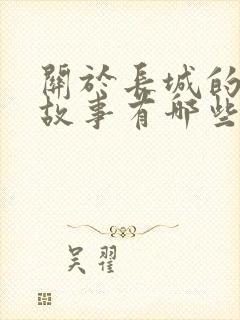 關於長城的
故事有哪些
吴翟